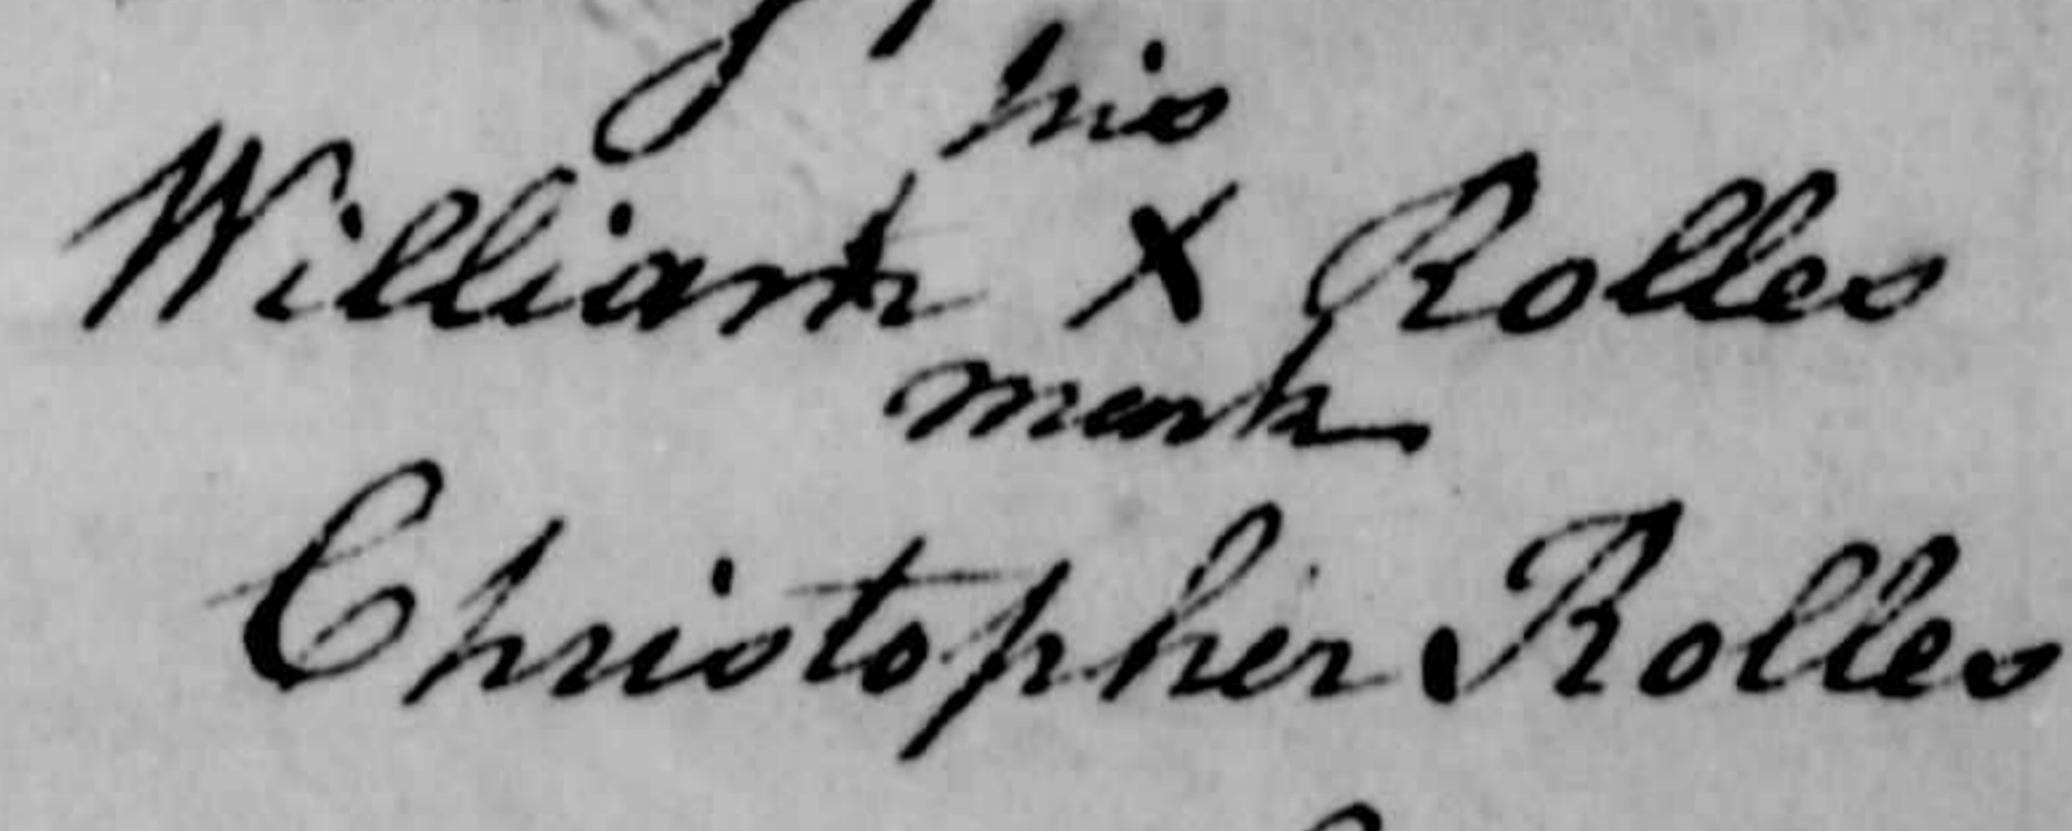 his
William X Rolles
mark
Christopher Rolles